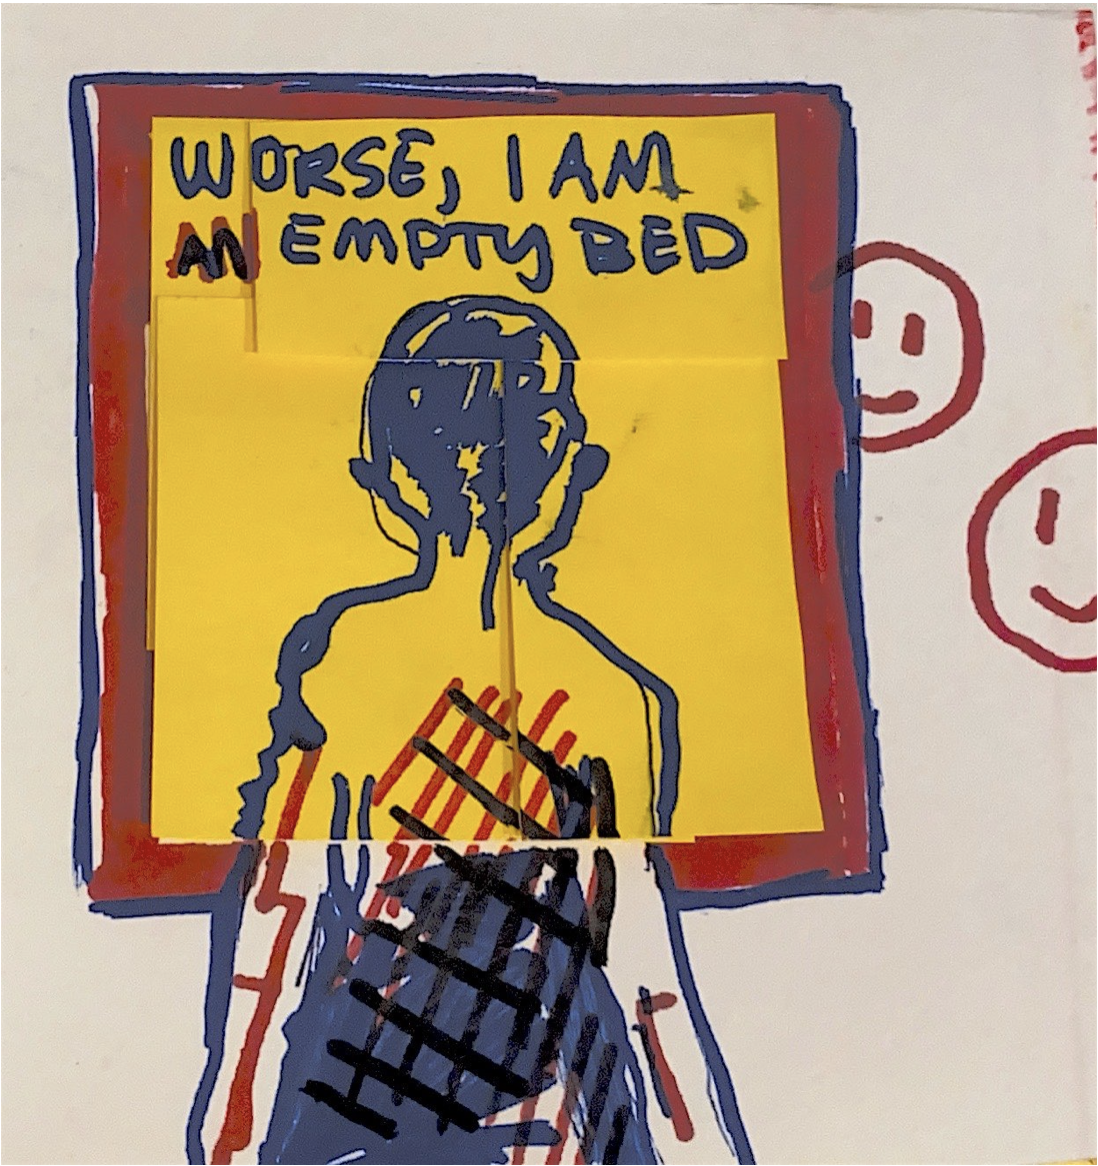 WORSE, I AM
AN EMPTY BED